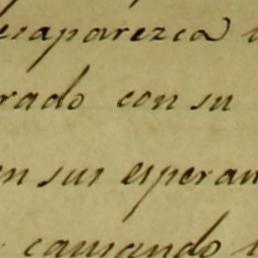 esaparezca
rado con su
en sus esperan
causando